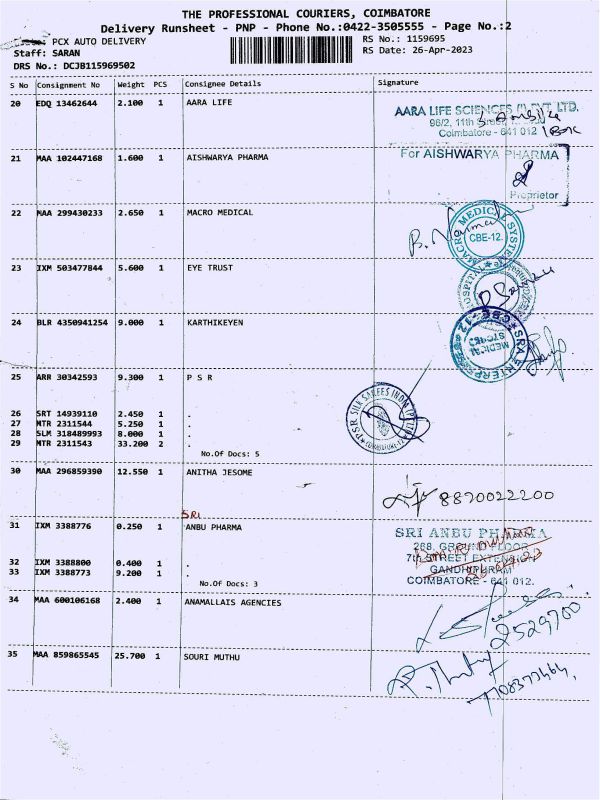 THE PROFESSIONAL COURIERS, COIMBATORE
Delivery Runsheet - PNP - Phone No.:0422-3505555 - Page No.:2
PCX AUTO DELIVERY
RS No.: 1159695
Staff: SARAN
RS Date: 26-Apr-2023
DRS No.: DCJB115969502
S No Consignment No Weight PCS Consignee Details Signature
20 EDQ 13462644 2.100 1 AARA LIFE
AARA LIFE SCIENCES (I) PVT. LTD.
96/2, 11th
Coimbatore - 641 012
21 MAA 102447168 1.600 1 AISHWARYA PHARMA
For AISHWARYA PHARMA
Proprietor
22 MAA 299430233 2.650 1 MACRO MEDICAL
MACRO MEDICAL SYSTEM
CBE-12.
23 IXM 503477844 5.600 1 EYE TRUST
HOSPITAL
24 BLR 4350941254 9.000 1 KARTHIKEYEN
SRI ENTERP
CBE-12
MEDICAL
STORES
25 ARR 30342593 9.300 1 P S R
PSR SILK SAREES INDIA (P) LTD
26 SRT 14939110 2.450 1 .
27 MTR 2311544 5.250 1 .
28 SLM 318489993 8.000 1 .
29 MTR 2311543 33.200 2 .
No.Of Docs: 5
30 MAA 296859390 12.550 1 ANITHA JESOME
8870022200
SRI
31 IXM 3388776 0.250 1 ANBU PHARMA
SRI ANBU PHARMA
268, GROUND FLOOR
7th STREET EXTENSION
GANDHIPURAM
COIMBATORE - 641 012.
32 IXM 3388800 0.400 1 .
33 IXM 3388773 9.200 1 .
No.Of Docs: 3
34 MAA 600106168 2.400 1 ANAMALLAIS AGENCIES
2529700
35 MAA 859865545 25.700 1 SOURI MUTHU